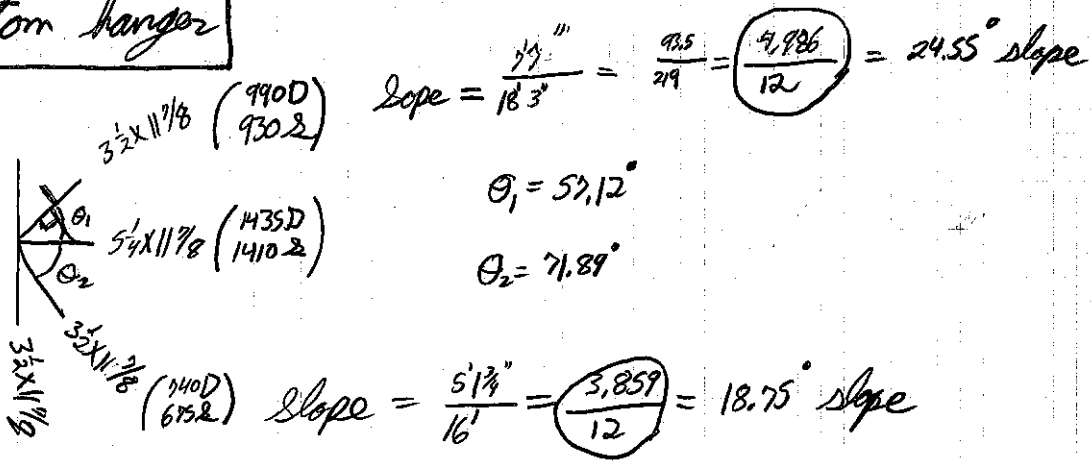 tom hanger
3 1/2 x 11 7/8 (990D 930S) Slope = 7'7" / 18'3" = 93.5/219 = 4,986/12 = 24.55° slope
θ₁ = 57,12°
θ₁
5 1/4 x 11 7/8 (1435D 1410S)
θ₂
θ₂ = 71.89°
3 1/2 x 11 7/8
3 1/2 x 11 7/8 (740D 675S) Slope = 5'1 3/4" / 16' = 3,859/12 = 18.75° slope